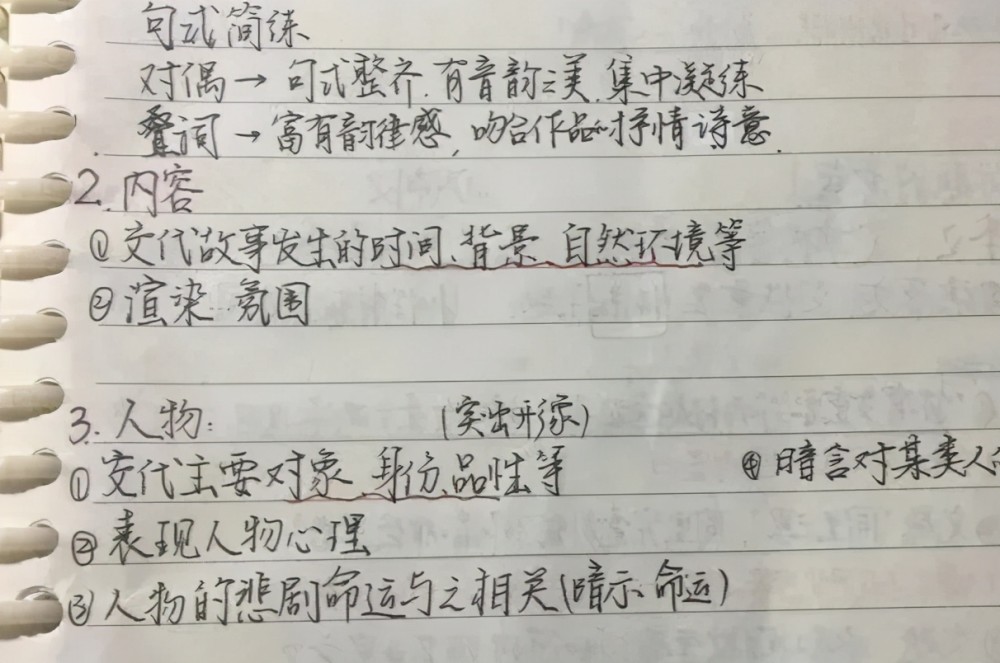 句式简练
对偶→句式整齐.有音韵之美.集中凝练
叠词→富有韵律感,吻合作品的抒情诗意.
2.内容
①交代故事发生的时间、背景、自然环境等
②渲染氛围
3.人物: (突出形象)
①交代主要对象、身份、品性等 ④暗含对某类人
②表现人物心理
③人物的悲剧命运与之相关(暗示命运)